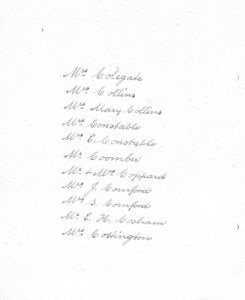 Mrs Colegate
Mrs Collins
Mrs Mary Collins
Mrs Constable
Mrs E. Constable
Mr Coomber
Mr & Mrs Coppard
Mrs J. Cornford
Mrs S. Cornford
Mr E. H. Cosham
Mrs Cottington